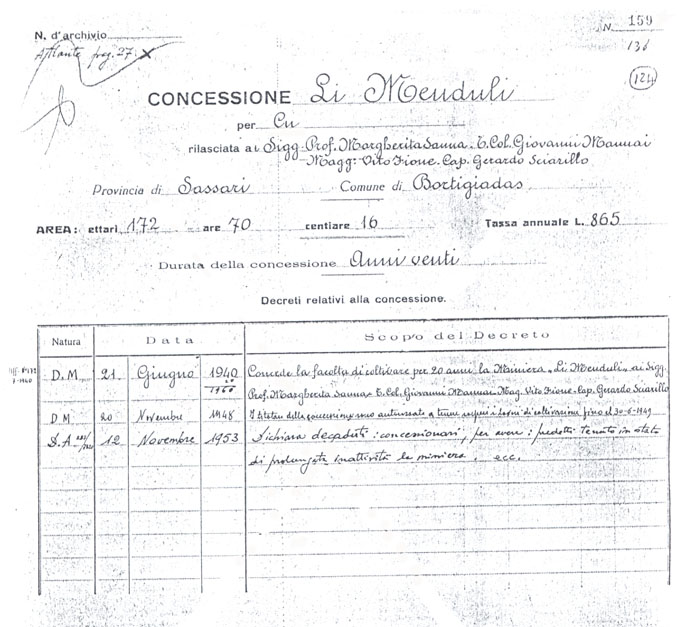 N. d'archivio
N. 159
Atlante pag. 27. X
136
124
CONCESSIONE Li Menduli
per Cu
rilasciata ai Sigg. Prof. Margherita Sanna - T. Col. Giovanni Mannai
Magg. Vito Fione - Cap. Gerardo Sciarillo
Provincia di Sassari Comune di Bortigiadas
AREA: ettari 172 are 70 centiare 16 Tassa annuale L. 865
Durata della concessione Anni venti
Decreti relativi alla concessione.
Natura Data Scopo del Decreto
D.M. 21 Giugno 1940 Concede la facoltà di coltivare per 20 anni la Miniera "Li Menduli" ai Sigg.
1960 Prof. Margherita Sanna - T. Col. Giovanni Mannai - Mag. Vito Fione - Cap. Gerardo Sciarillo
D M 20 Novembre 1948 I titolari della concessione sono autorizzati a tenere sospesi i lavori di coltivazione fino al 30-6-1949
D.A. 12 Novembre 1953 Dichiara decaduti i concessionari, per avere i predetti tenuto in stato
di prolungata inattività la miniera, ecc.